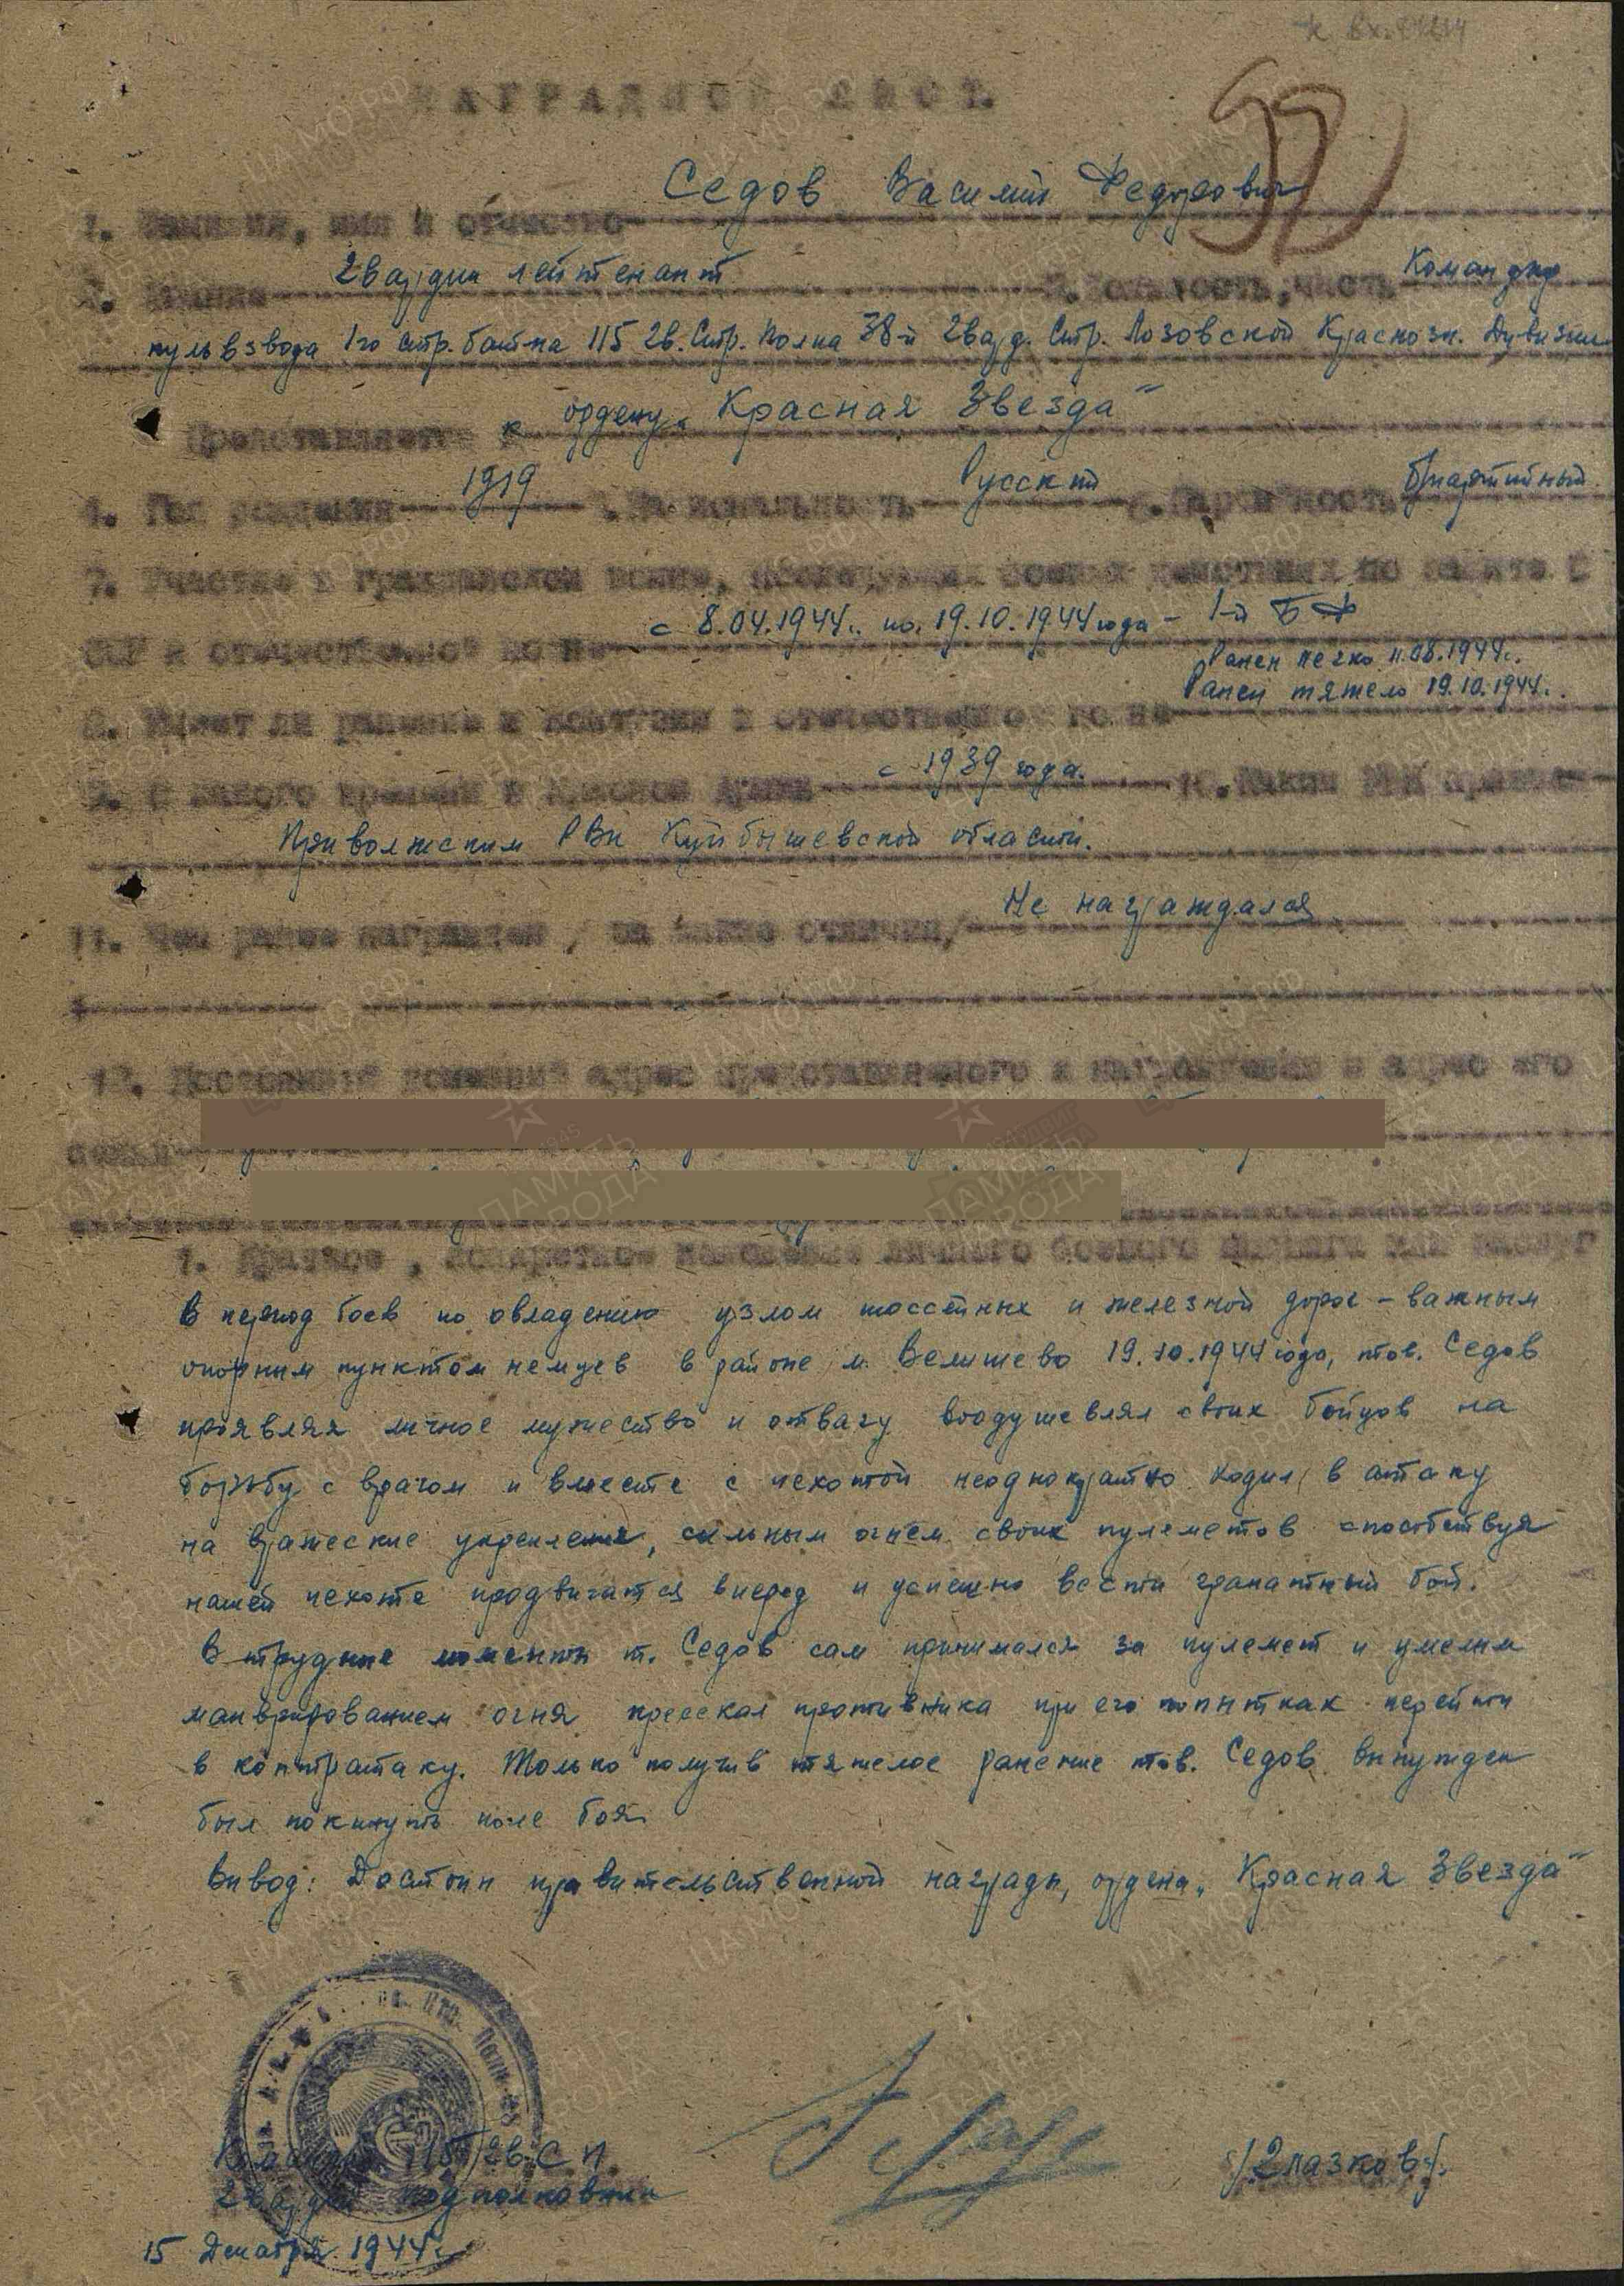 НАГРАДНОЙ ЛИСТ.
Седов Василий Федорович
1. Фамилия, имя и отчество
Гвардии лейтенант
2. Звание 3. Должность, часть Командир
пульвзвода 1го стр. бат-на 115 Гв. Стр. Полка 38-й Гвард. Стр. Лозовской Краснозн. Дивизии
Представляется к ордену „Красная Звезда"
4. Год рождения 1919 5. Национальность Русский 6. Партийность б/партийный.
7. Участие в гражданской войне, последующих боевых действиях по защите С
ССР и отечественной войне с 8.04.1944г. по 19.10.1944 года - 1-й БФ
Ранен легко 11.08.1944г.
Ранен тяжело 19.10.1944г.
8. Имеет ли ранения и контузии в отечественной войне
9. С какого времени в Красной Армии с 1939 года. 10. Каким РВК призван
Приволжским РВК Куйбышевской области.
11. Чем ранее награжден, за какие отличия, Не награждался
12. Постоянный домашний адрес представляемого к награждению и адрес его
семьи
1. Краткое, конкретное изложение личного боевого подвига или заслуг
В период боев по овладению узлом шоссейных и железной дорог - важным
опорным пунктом немцев в районе м. Велишево 19.10.1944 года, тов. Седов
проявляя личное мужество и отвагу воодушевлял своих бойцов на
борьбу с врагом и вместе с пехотой неоднократно ходил в атаку
на вражеские укрепления, сильным огнем своих пулеметов способствуя
нашей пехоте продвигатся вперед и успешно вести гранатный бой.
В трудные моменты т. Седов сам принимался за пулемет и умелым
манврированием огня пресекал противника при его попытках перейти
в контратаку. Только получив тяжелое ранение тов. Седов вынужден
был покинуть поле боя.
Вывод: Достоин правительственной награды, ордена „Красная Звезда"
Командир 115 Гв. С П.
Гвардии подполковник
/Глазков/.
15 Декабря 1944г.
ЦА МО РФ
ПАМЯТЬ НАРОДА